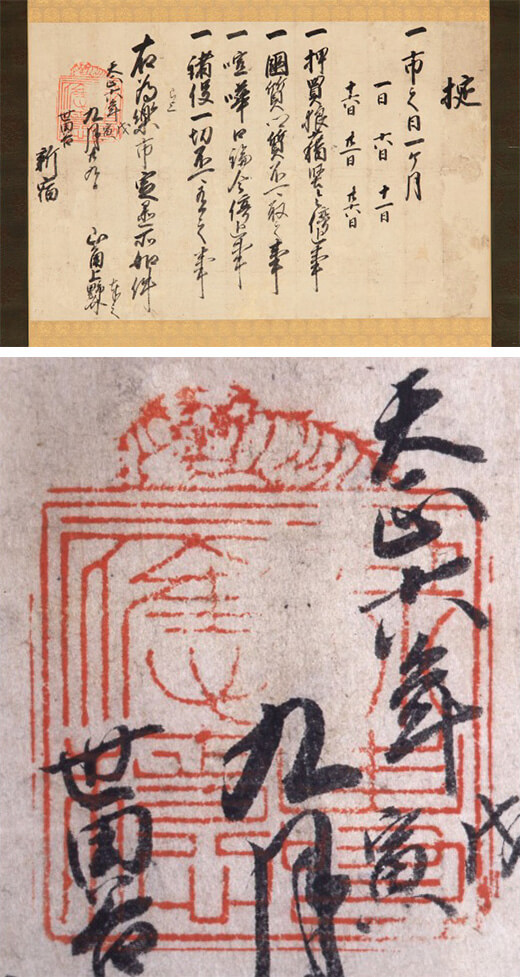 掟
一市之日一ヶ月
一日 六日 十一日
十六日 廿一日 廿六日
一押買狼藉堅令停止事
一國質郷質不可取之事
一喧嘩口論令停止事
一諸役一切不可有之事
已上
右為樂市定置所如件
天正六年戊寅
九月廿九日
山角上野介奉之
世田谷
新宿
天正六年戊寅
九月
世田谷